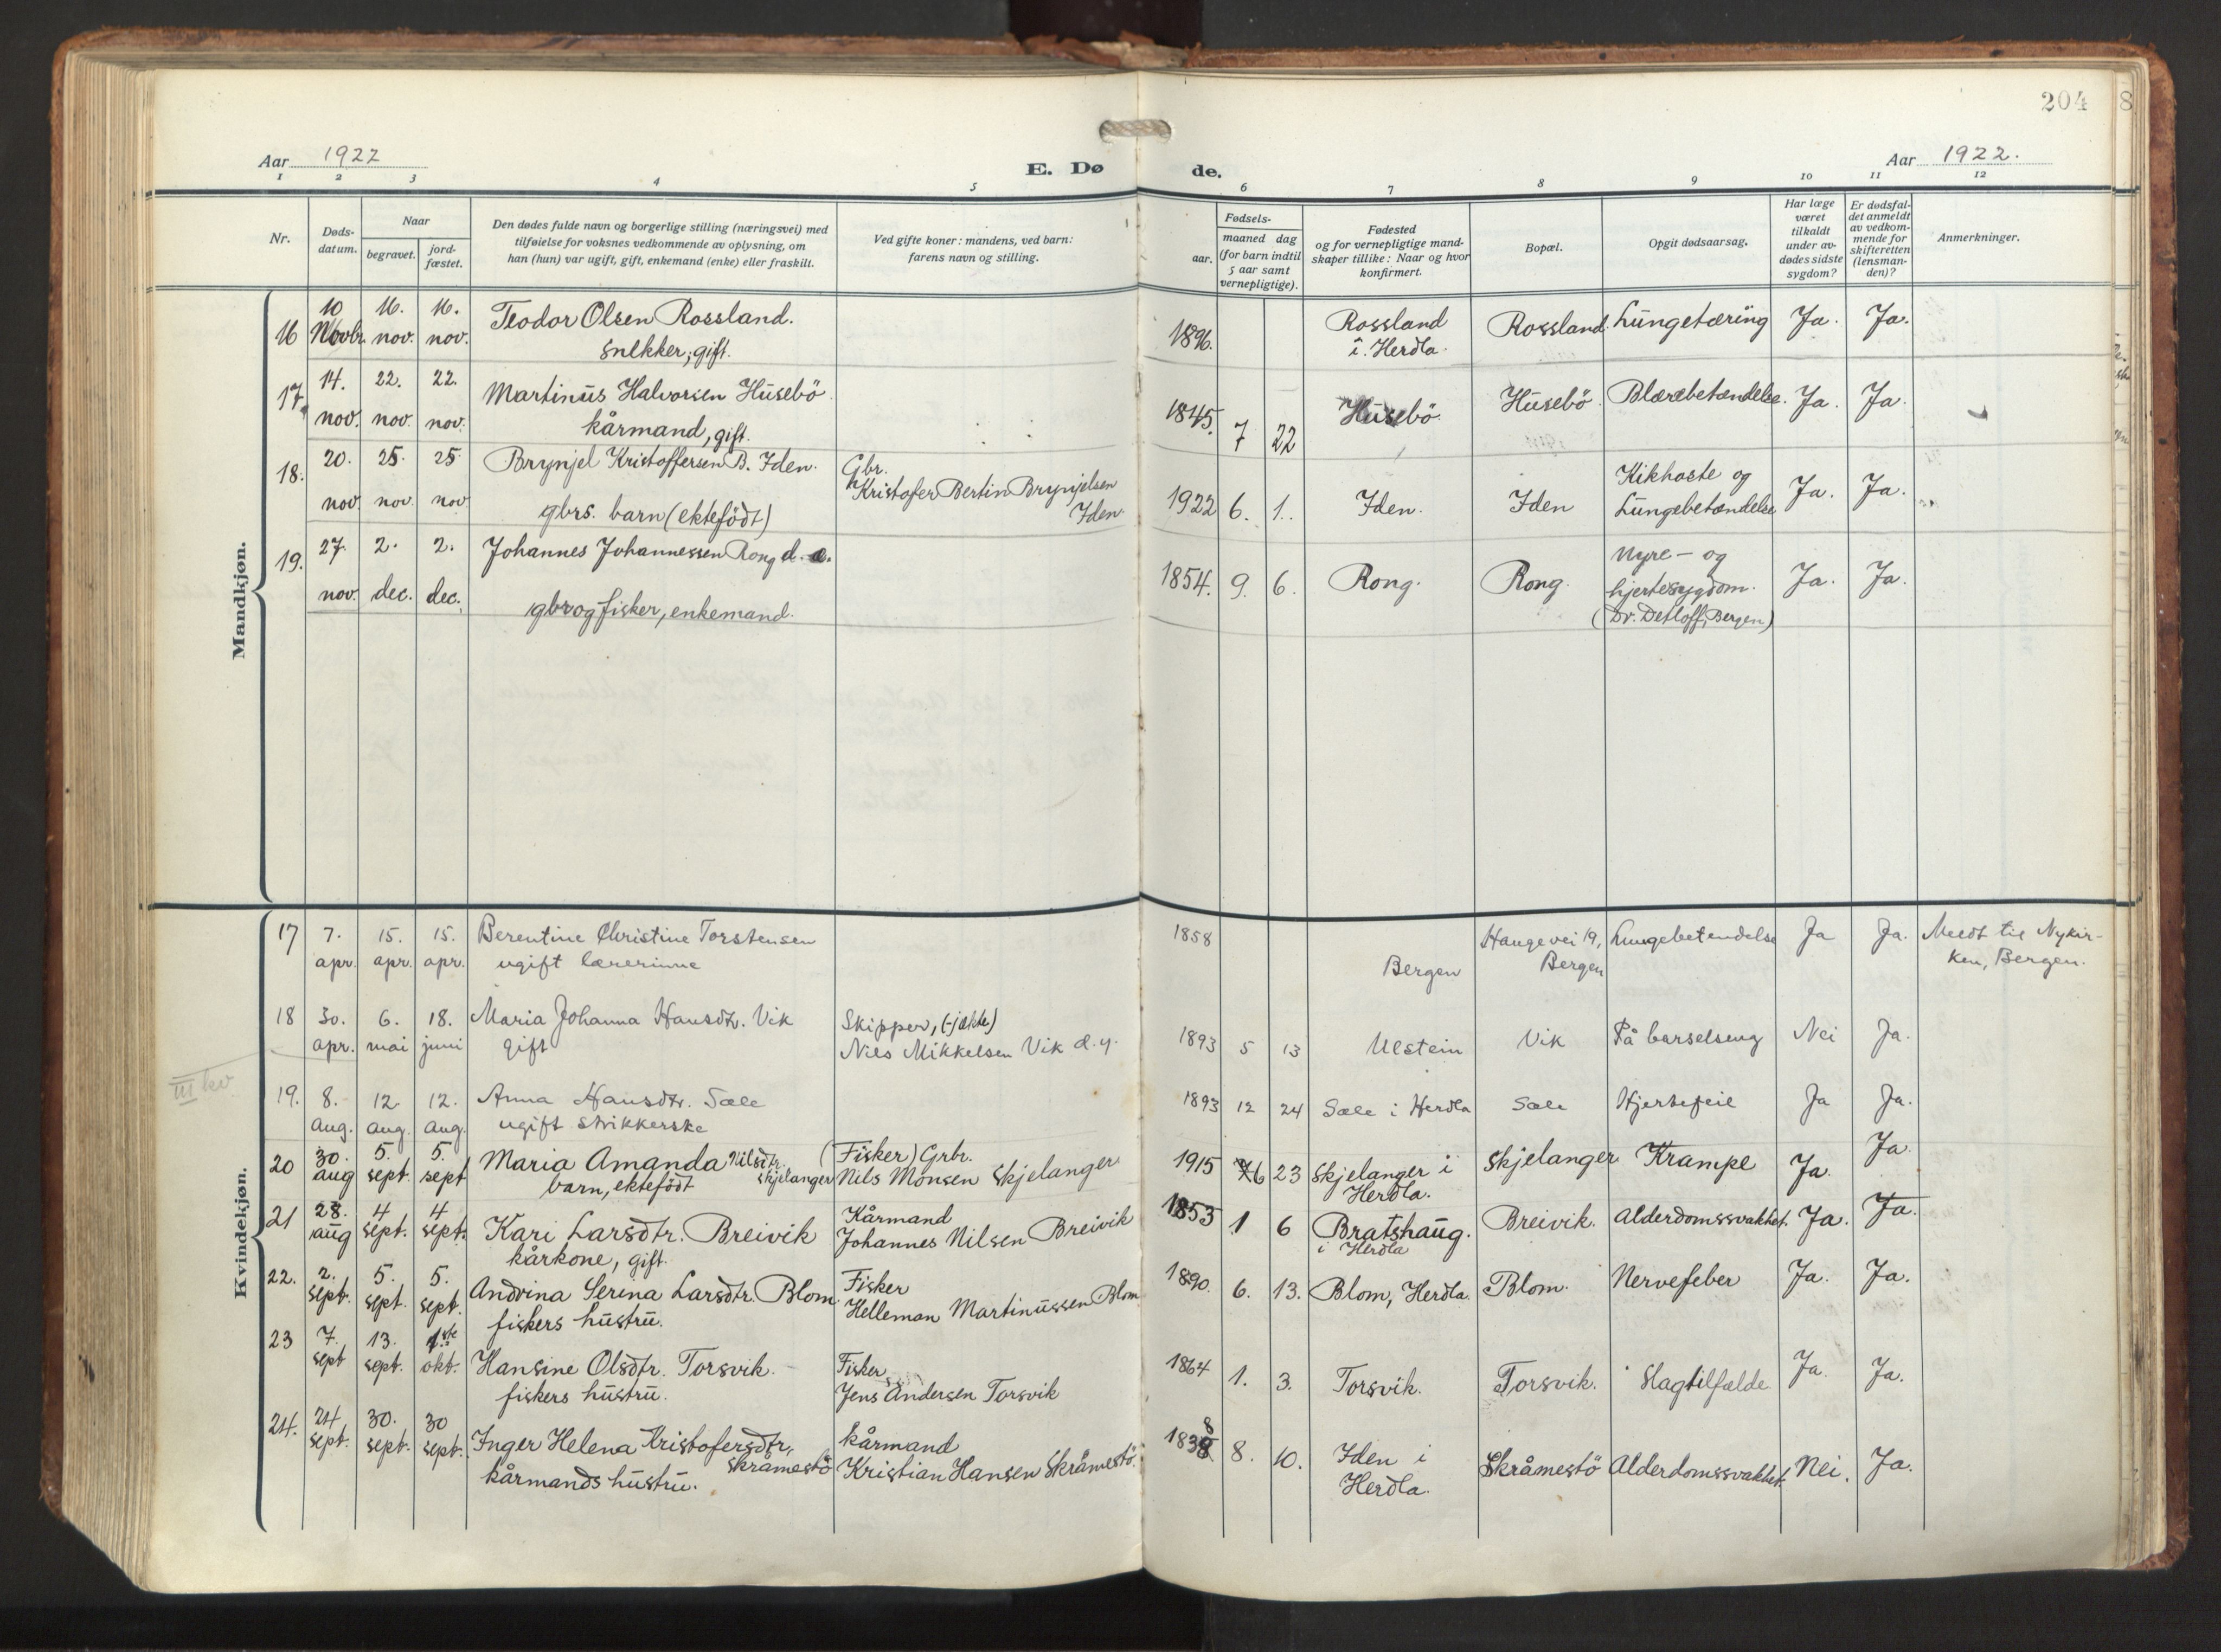 204
8
Aar 1922
E. Dø
de.
Aar 1922.
1 2 3 4 5 6 7 8 9 10 11 12
Nr.
Døds-
datum.
Naar
begravet.
jord-
fæstet.
Den dødes fulde navn og borgerlige stilling (næringsvei) med
tilføielse for voksnes vedkommende av oplysning, om
han (hun) var ugift, gift, enkemand (enke) eller fraskilt.
Ved gifte koner: mandens, ved barn:
farens navn og stilling.
Fødsels-
aar.
maaned dag
(for barn indtil
5 aar samt
vernepligtige).
Fødested
og for vernepligtige mand-
skaper tillike: Naar og hvor
konfirmert.
Bopæl.
Opgit dødsaarsag.
Har læge
været
tilkaldt
under av-
dødes sidste
sygdom?
Er dødsfal-
det anmeldt
av vedkom-
mende for
skifteretten
(lensman-
den)?
Anmerkninger.
Mandkjøn.
16 10 Novbr. 16. nov. 16. nov. Teodor Olsen Rossland.
snekker, gift.
1896. Rossland
i. Herdla. Rossland. Lungetæring Ja. Ja.
17 14. nov. 22. nov. 22. nov. Martinus Halvorsen Husebö.
kårmand, gift.
1845. 7 22 Husebö. Husebö. Blærebetændelse. Ja. Ja.
18. 20. nov. 25. nov. 25 nov Brynjel Kristoffersen B. Iden.
gbrs. barn (ektefödt)
Gbr.
Kristofer Bertin Brynjelsen
Iden.
1922 6. 1. Iden. Iden Kikhoste og
Lungebetændelse Ja. Ja.
19. 27. nov. 2. dec. 2. dec. Johannes Johannessen Rong d. e.
gbr og fisker, enkemand.
1854. 9. 6. Rong. Rong. Nyre- og
hjertesygdom.
(Dr. Detloff, Bergen) Ja. Ja.
Kvindekjøn.
III kv
17 7. apr. 15. apr. 15. apr. Berentine Christine Torstensen
ugift lærerinne
1858 Bergen Haugevei 19,
Bergen Lungebetendelse Ja Ja. Meldt til Nykir-
ken, Bergen.
18 30. apr. 6. mai 18. juni Maria Johanna Hansdtr. Vik
gift
Skipper, (-jækte)
Nils Mikkelsen Vik d.y.
1893 5 13 Ulstein Vik På barselseng Nei Ja.
19. 8. aug. 12. aug. 12. aug. Anna Hansdtr. Sæle
ugift strikkerske
1893 12 24 Sæle i Herdla Sæle Hjertefeil Ja Ja.
20 30. aug 5. sept. 5. sept Maria Amanda Nilsdtr.
Skjelanger
barn, ektefödt
(Fisker) Grbr.
Nils Monsen Skjelanger
1915 6 23 Skjelanger i
Herdla. Skjelanger Krampe Ja. Ja.
21 28. aug 4 sept. 4 sept. Kari Larsdtr. Breivik
kårkone, gift.
Kårmand
Johannes Nilsen Breivik
1853 1 6 Bratshaug.
i Herdla Breivik. Alderdomssvakhet. Ja. Ja.
22. 2. sept. 5. sept. 5. sept. Andrina Serina Larsdtr. Blom
fiskers hustru.
Fisker
Helleman Martinussen Blom
1890. 6. 13. Blom, Herdla. Blom. Nervefeber Ja. Ja.
23 7. sept 13. sept. 1ste okt. Hansine Olsdtr. Torsvik.
fiskers hustru.
Fisker
Jens Andersen Torsvik
1864 1. 3. Torsvik. Torsvik. Slagtilfælde Ja. Ja.
24. 24 sept. 30. sept. 30 sept. Inger Helena Kristofersdtr,
Skråmestö
kårmands hustru.
kårmand
Kristian Hansen Skråmestö.
1838 8. 10. Iden i
Herdla. Skråmestö Alderdomssvakhet. Nei. Ja.